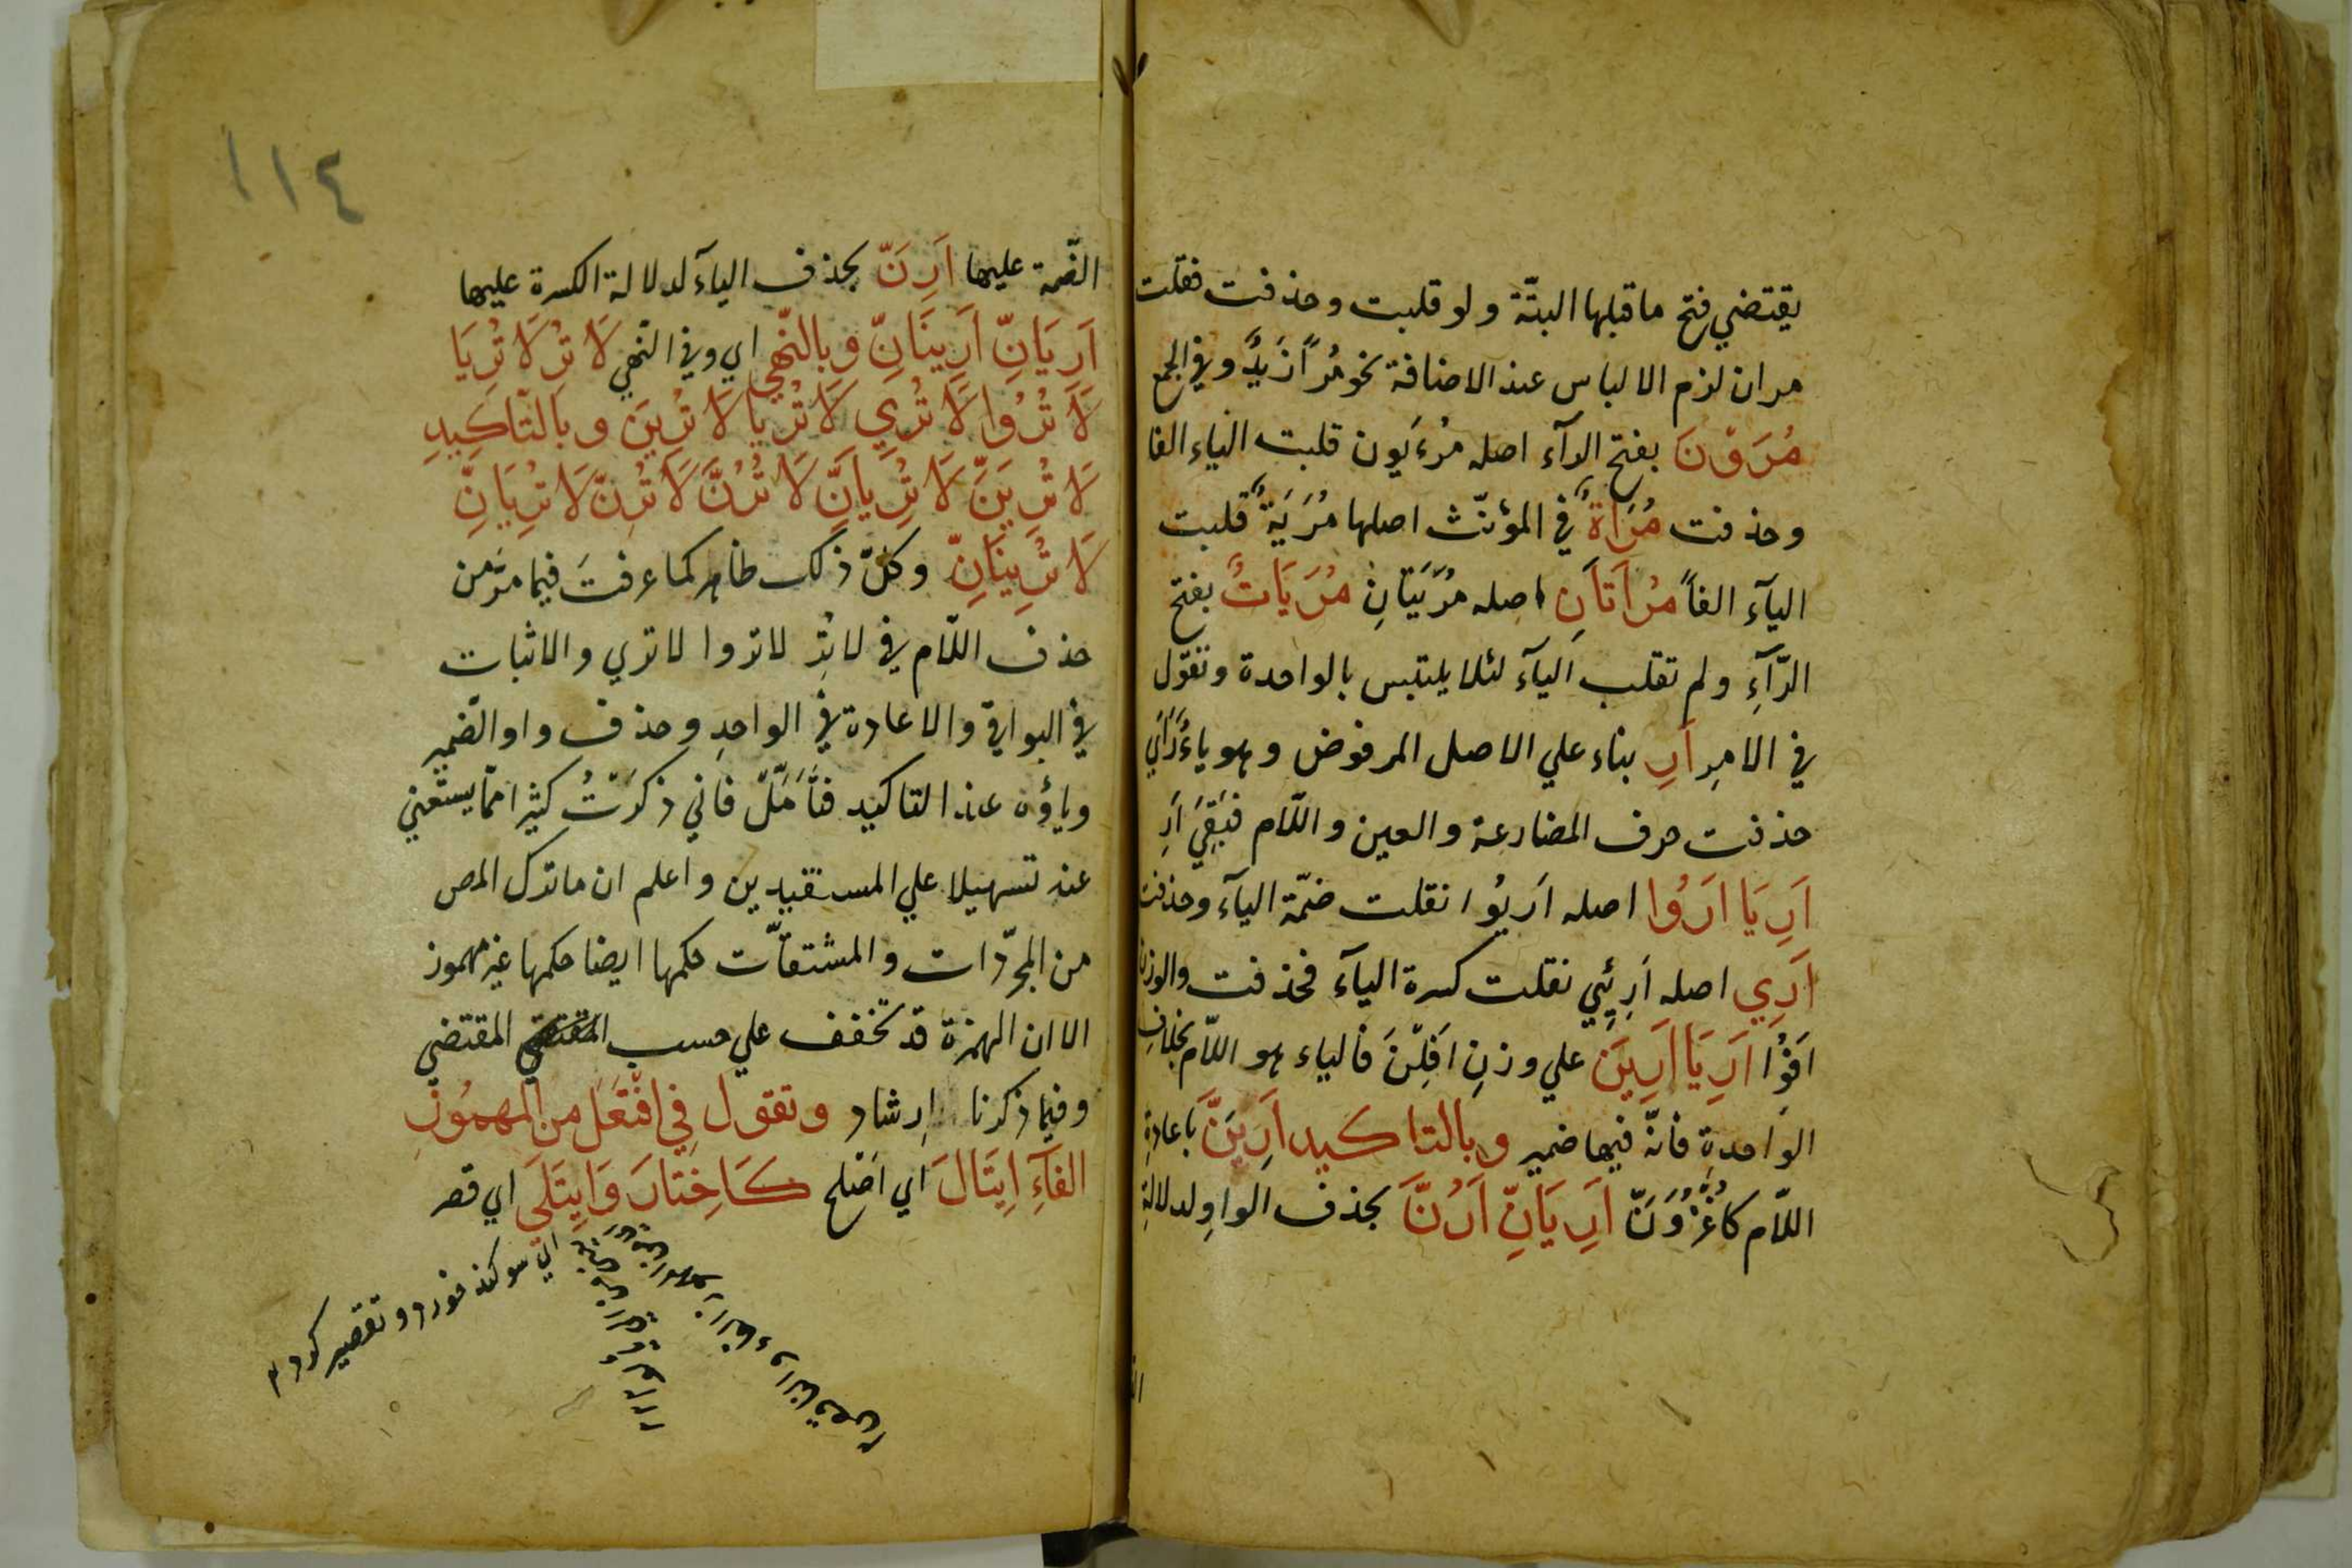 يقتضي فتح ما قبلها البتّة ولو قلبت وحذفت فقلت
مران لزم الالباس عند الاضافة نحو مُرًا زَيدٍ وفي الجمع
مُرَوْنَ بفتح الرآء اصله مُرْءَيون قلبت الياء الفا
وحذفت مُرَاةٌ في المؤنّث اصلها مُرَيَةٌ قلبت
اليآء الفاً مُرَاَتَاَنِ اصله مُرَيَتَانِ مُرَيَاتٌ بفتح
الرّآءِ ولم تقلب اليآء لئلا يلتبس بالواحدة وتقول
في الامرِ اَرِ بناء علي الاصل المرفوض وهو
حذفت حرف المضارعة والعين واللّام فبَقِيَ اَرِ
اَرِيَا اَرُوا اصله اَرِيُوا نقلت ضمّة اليآء وحذفت
اَرِي اصله اَرِئِيي نقلت كسرة اليآء فحذفت والوزن
اَفوُا اَرِيَا اَرِينَ علي وزنِ اَفِلْنَ فالياء هو اللّام بخلافِ
الواحدةِ فانّه فيها ضمير وبالتاكيد اَرِيَنَّ باعادةِ
اللّام كاُغْزُوَنَّ اَرِيَانِّ اَرُنَّ بحذف الواوِ لدلالةِ
١١٤
الضّمة عليها اَرِنَّ بحذف اليآء لدلالة الكسرة عليها
اَرِيَانِّ اَرِينَانِّ وبالنّهي اي وفي النّهي لَا تُرِ لَا تُرِيَا
لَا تُرُوا لَا تُرِي لَا تُرِيَا لَا تُرِينَ وبالتّاكِيدِ
لَا تُرِيَنَّ لَا تُرِيانِّ لَا تُرُنَّ لَا تُرِنَّ لَا تُرِيَانِّ
لَا تُرِينَانِّ وكلّ ذلك ظاهر كما عرفتَ فيما مرَّ من
حذف اللّام في لا تُرِ لا تروا لا تري والاثبات
في البواقي والاعادة في الواحدِ وحذف واو الضّمير
وياؤه عند التاكيد فتَاَمَّلْ فاني ذكرْتُ كثيرا ممّا يستغني
عنه تسهيلا علي المستفيدين واعلم ان ما ترك المص
من المجرّدات والمشتقاّت حكمها ايضا حكمها غير مهموز
الا ان الهمزة قد تخفف علي حسب المقتضي المقتضي
وفيما ذكرنا اِرشاد وتقول فِي افْتَعَلَ من المهمُوزِ
الفَآءِ اِيتَالَ اي اَصْلح كَاخِتَارَ وَاِيتَلَي اي قصر
اي سوكند خورد و تقصير كرد ١٢